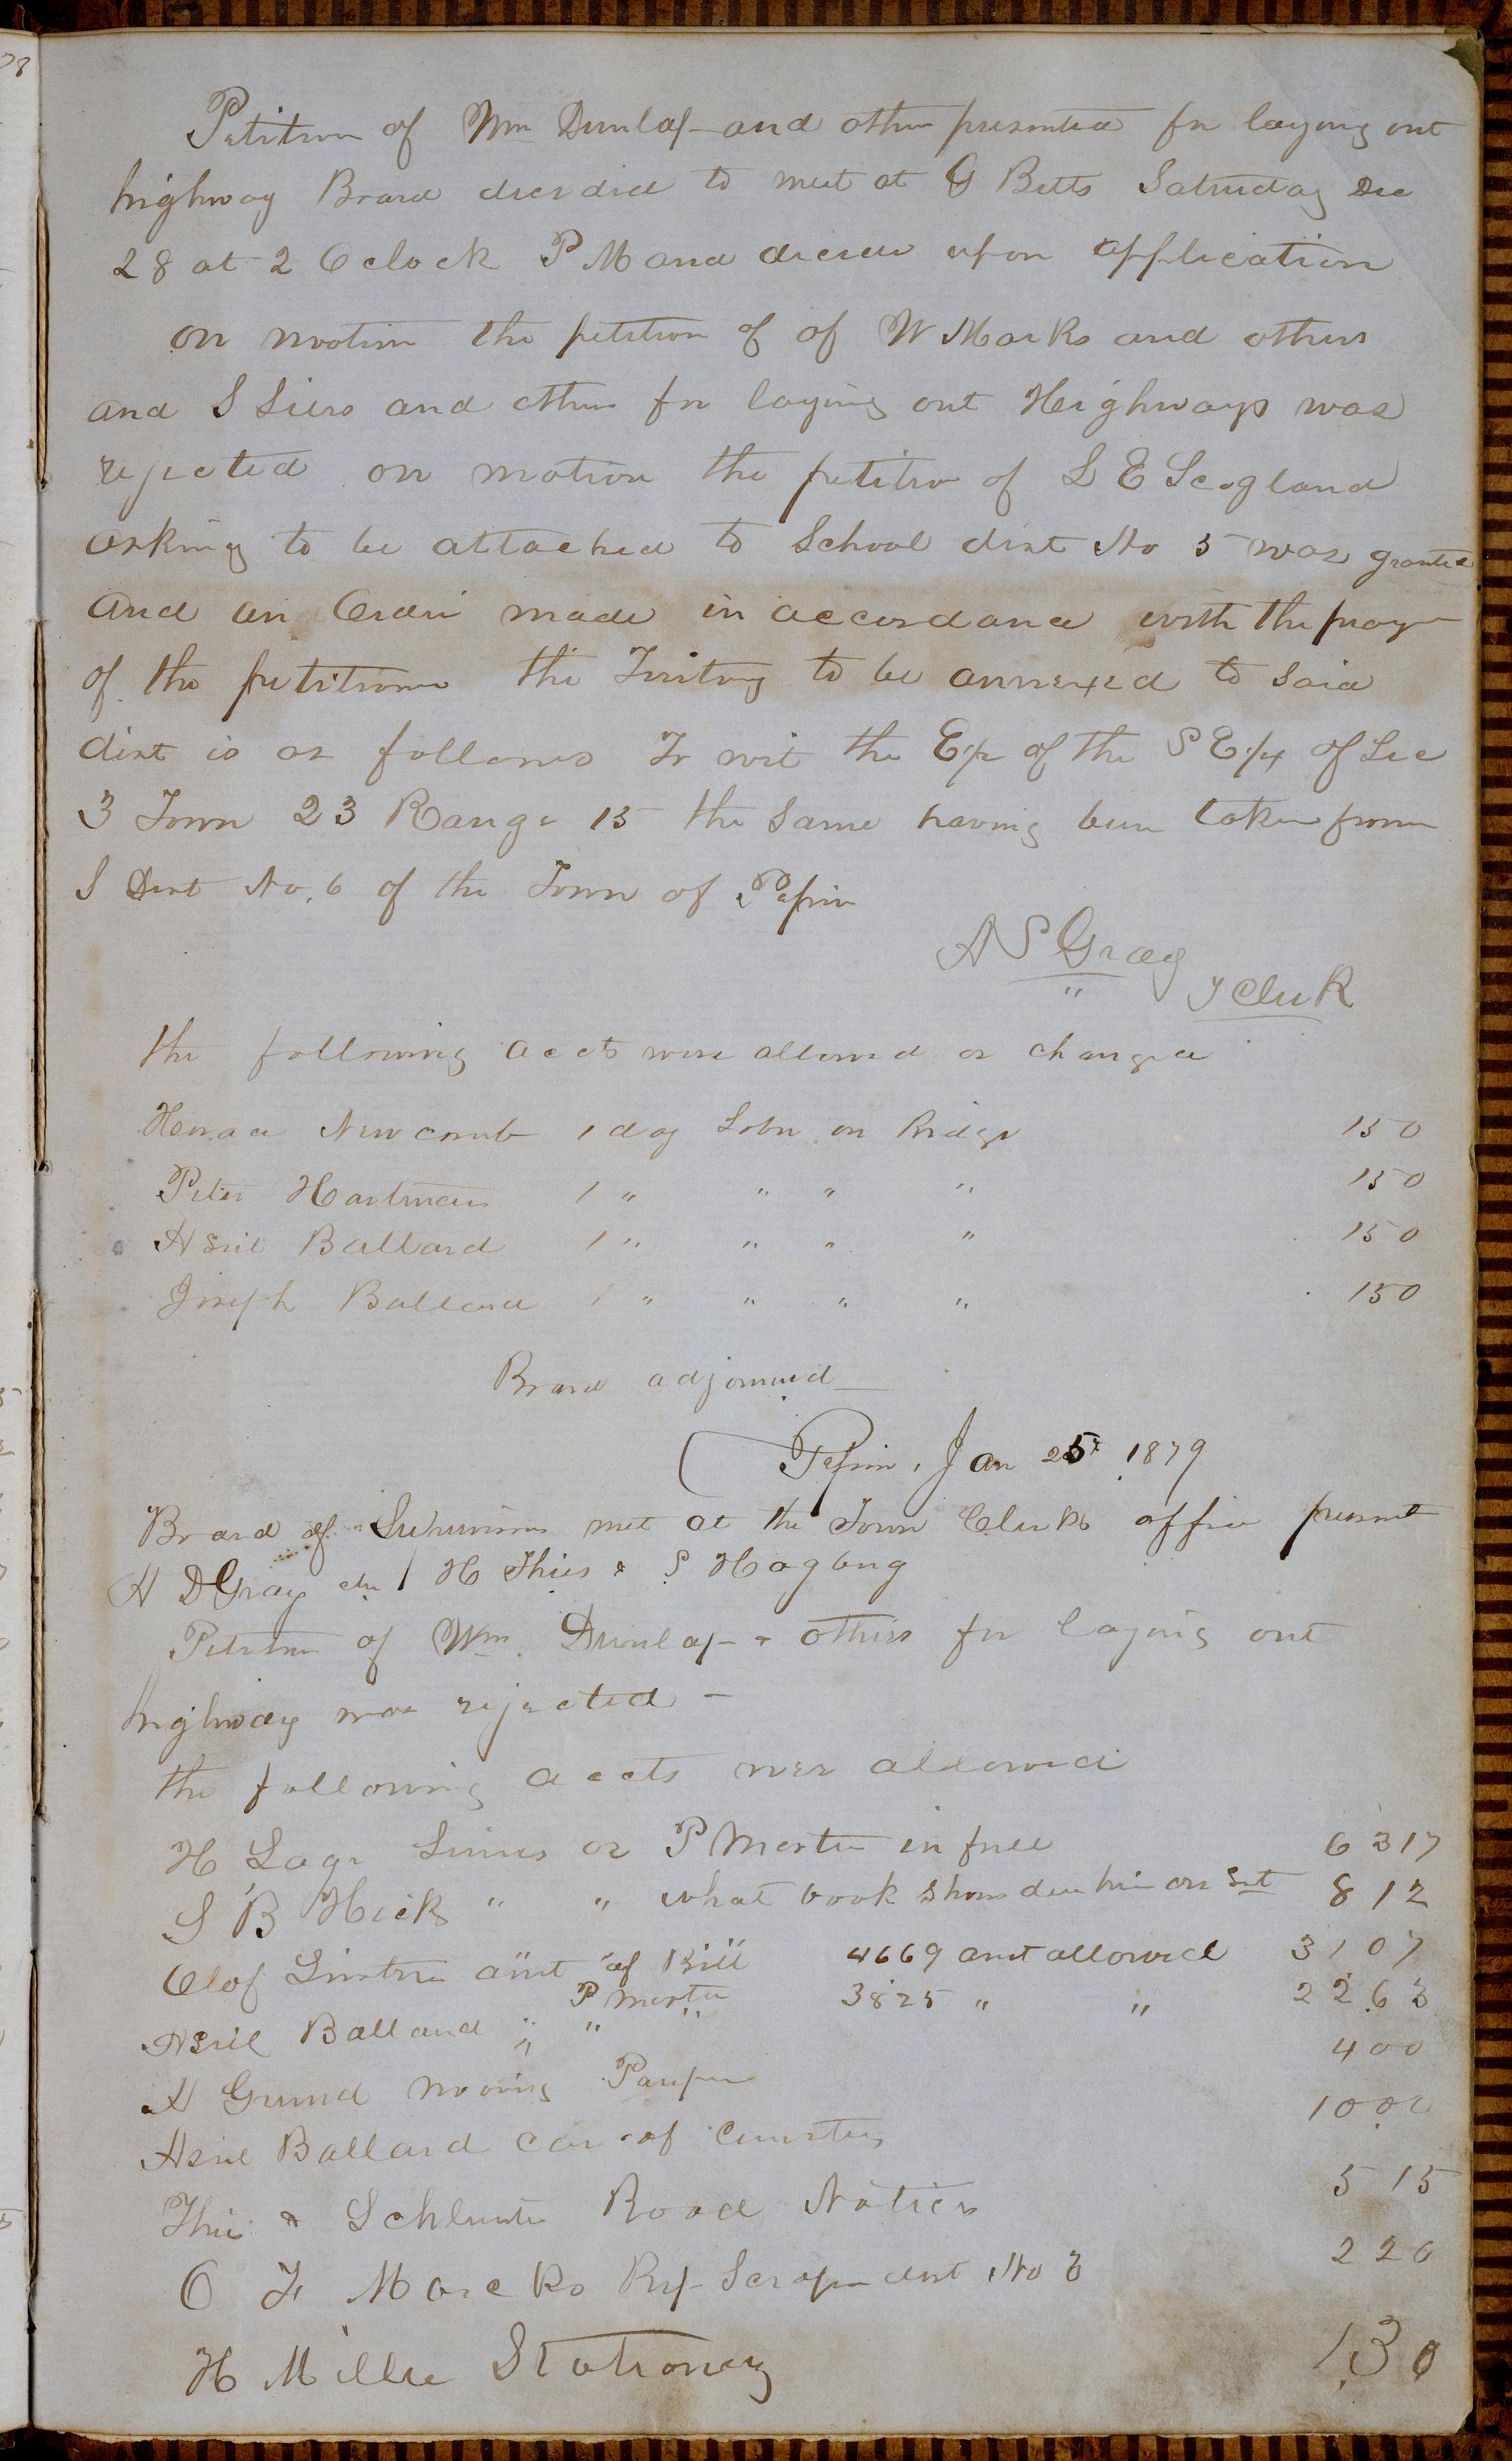 Petition of Wm Dunlap and others presented for laying out
highway Board decided to meet at G Betts Saturday Dec
28 at 2 Oclock P M and decide upon application
on motion the petition of of W Marks and others
and S Siers and others for laying out Heighways was
rejected on motion the petition of L E Scogland
asking to be attached to School dist No 5 was granted
and an Order made in accordance with the prayer
of the petitioner the Territory to be annexed to said
dist is as follows To wit the E 1/2 of the S E 1/4 of Sec
3 Town 23 Range 15 the same having been taken from
S Dist No. 6 of the Town of Pepin
A S Gray
T Clerk
the following accts were allowed as charged
Horace Newcomb 1 day Labor on Bridge 150
Peter Hartman 1 " " " " 150
Asriel Ballard 1 " " " " 150
Joseph Ballard 1 " " " " 150
Board adjourned
Pepin, Jan 25 1879
Board of Supervisors met at the Town Clerks office present
A D Gray chr H Thies & S Hogberg
Petition of Wm Dunlap & others for laying out
highway was rejected
the following accts were allowed
H Lage Services as P Master in full 6317
S B Hicks " " what book shows due him on Set 812
Olof amt of Bill 4669 amt allowed 3107
P Master
Asriel Ballard " " " 3825 " " 2263
A Grund moving Pauper 400
Asriel Ballard care of Cemetery 1000
Thies & Schlunts Road Notices 515
O F Marcks Rep Scraper dist No 3 220
H Miller Stationery 130